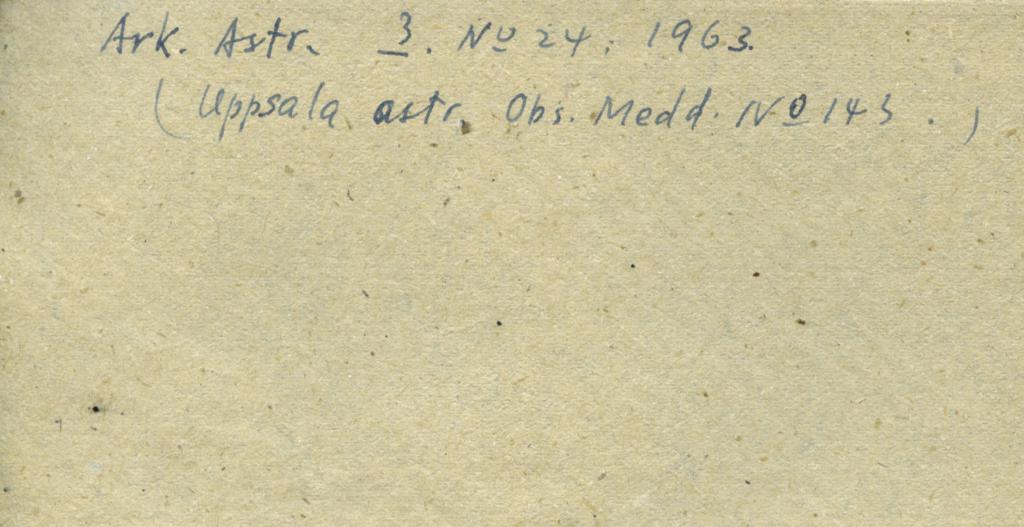 Ark. Astr. 3. No 24, 1963.
(Uppsala astr. Obs. Medd. No 143.)